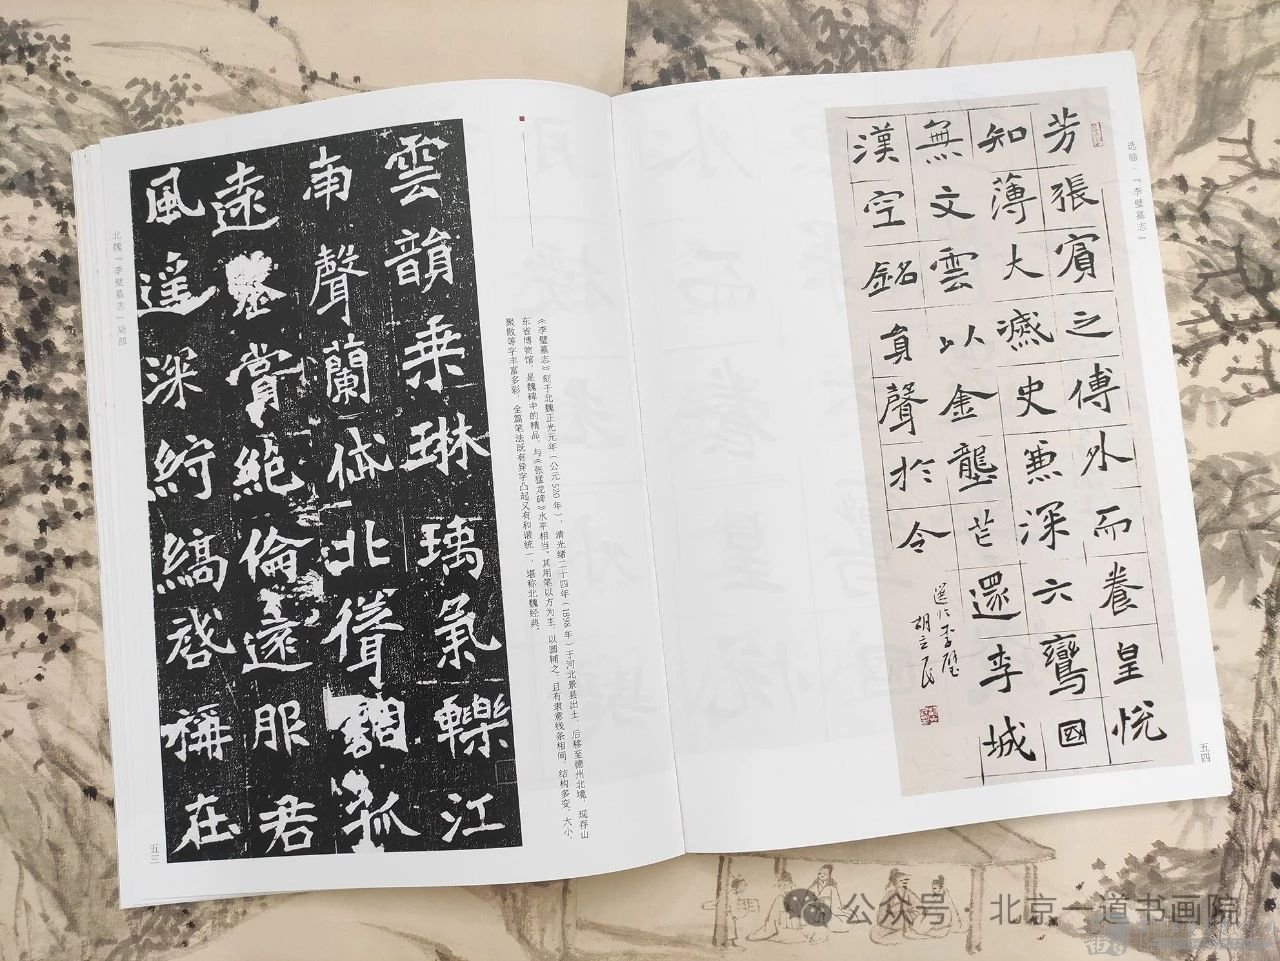 选临·『李璧墓志』
芳張賓之傅外而養皇悦
知薄大史兼深六鸞國
無文雲以金龔芒還李城
漢空銘聲於令
李璧
胡立民
五四
《李璧墓志》刻于北魏正光元年（公元 520 年），清光绪二十四年（1898 年）于河北景县出土，后移至德州北境，现存山
东省博物馆，是魏碑中的精品，与《张猛龙碑》水平相当，其用笔以方为主，以圆辅之，且有隶意线条相间，结构多变、大小、
聚散等字丰富多彩，全篇笔法既有异字凸起又有和谐统一，堪称北魏经典。
雲韻乗琳瑀氣轢江
南聲蘭岱北響調孤
遠賞絕倫遠服君
風遥深紵縞啓稱在
北魏『李璧墓志』局部
五三
公众号 · 北京一道书画院